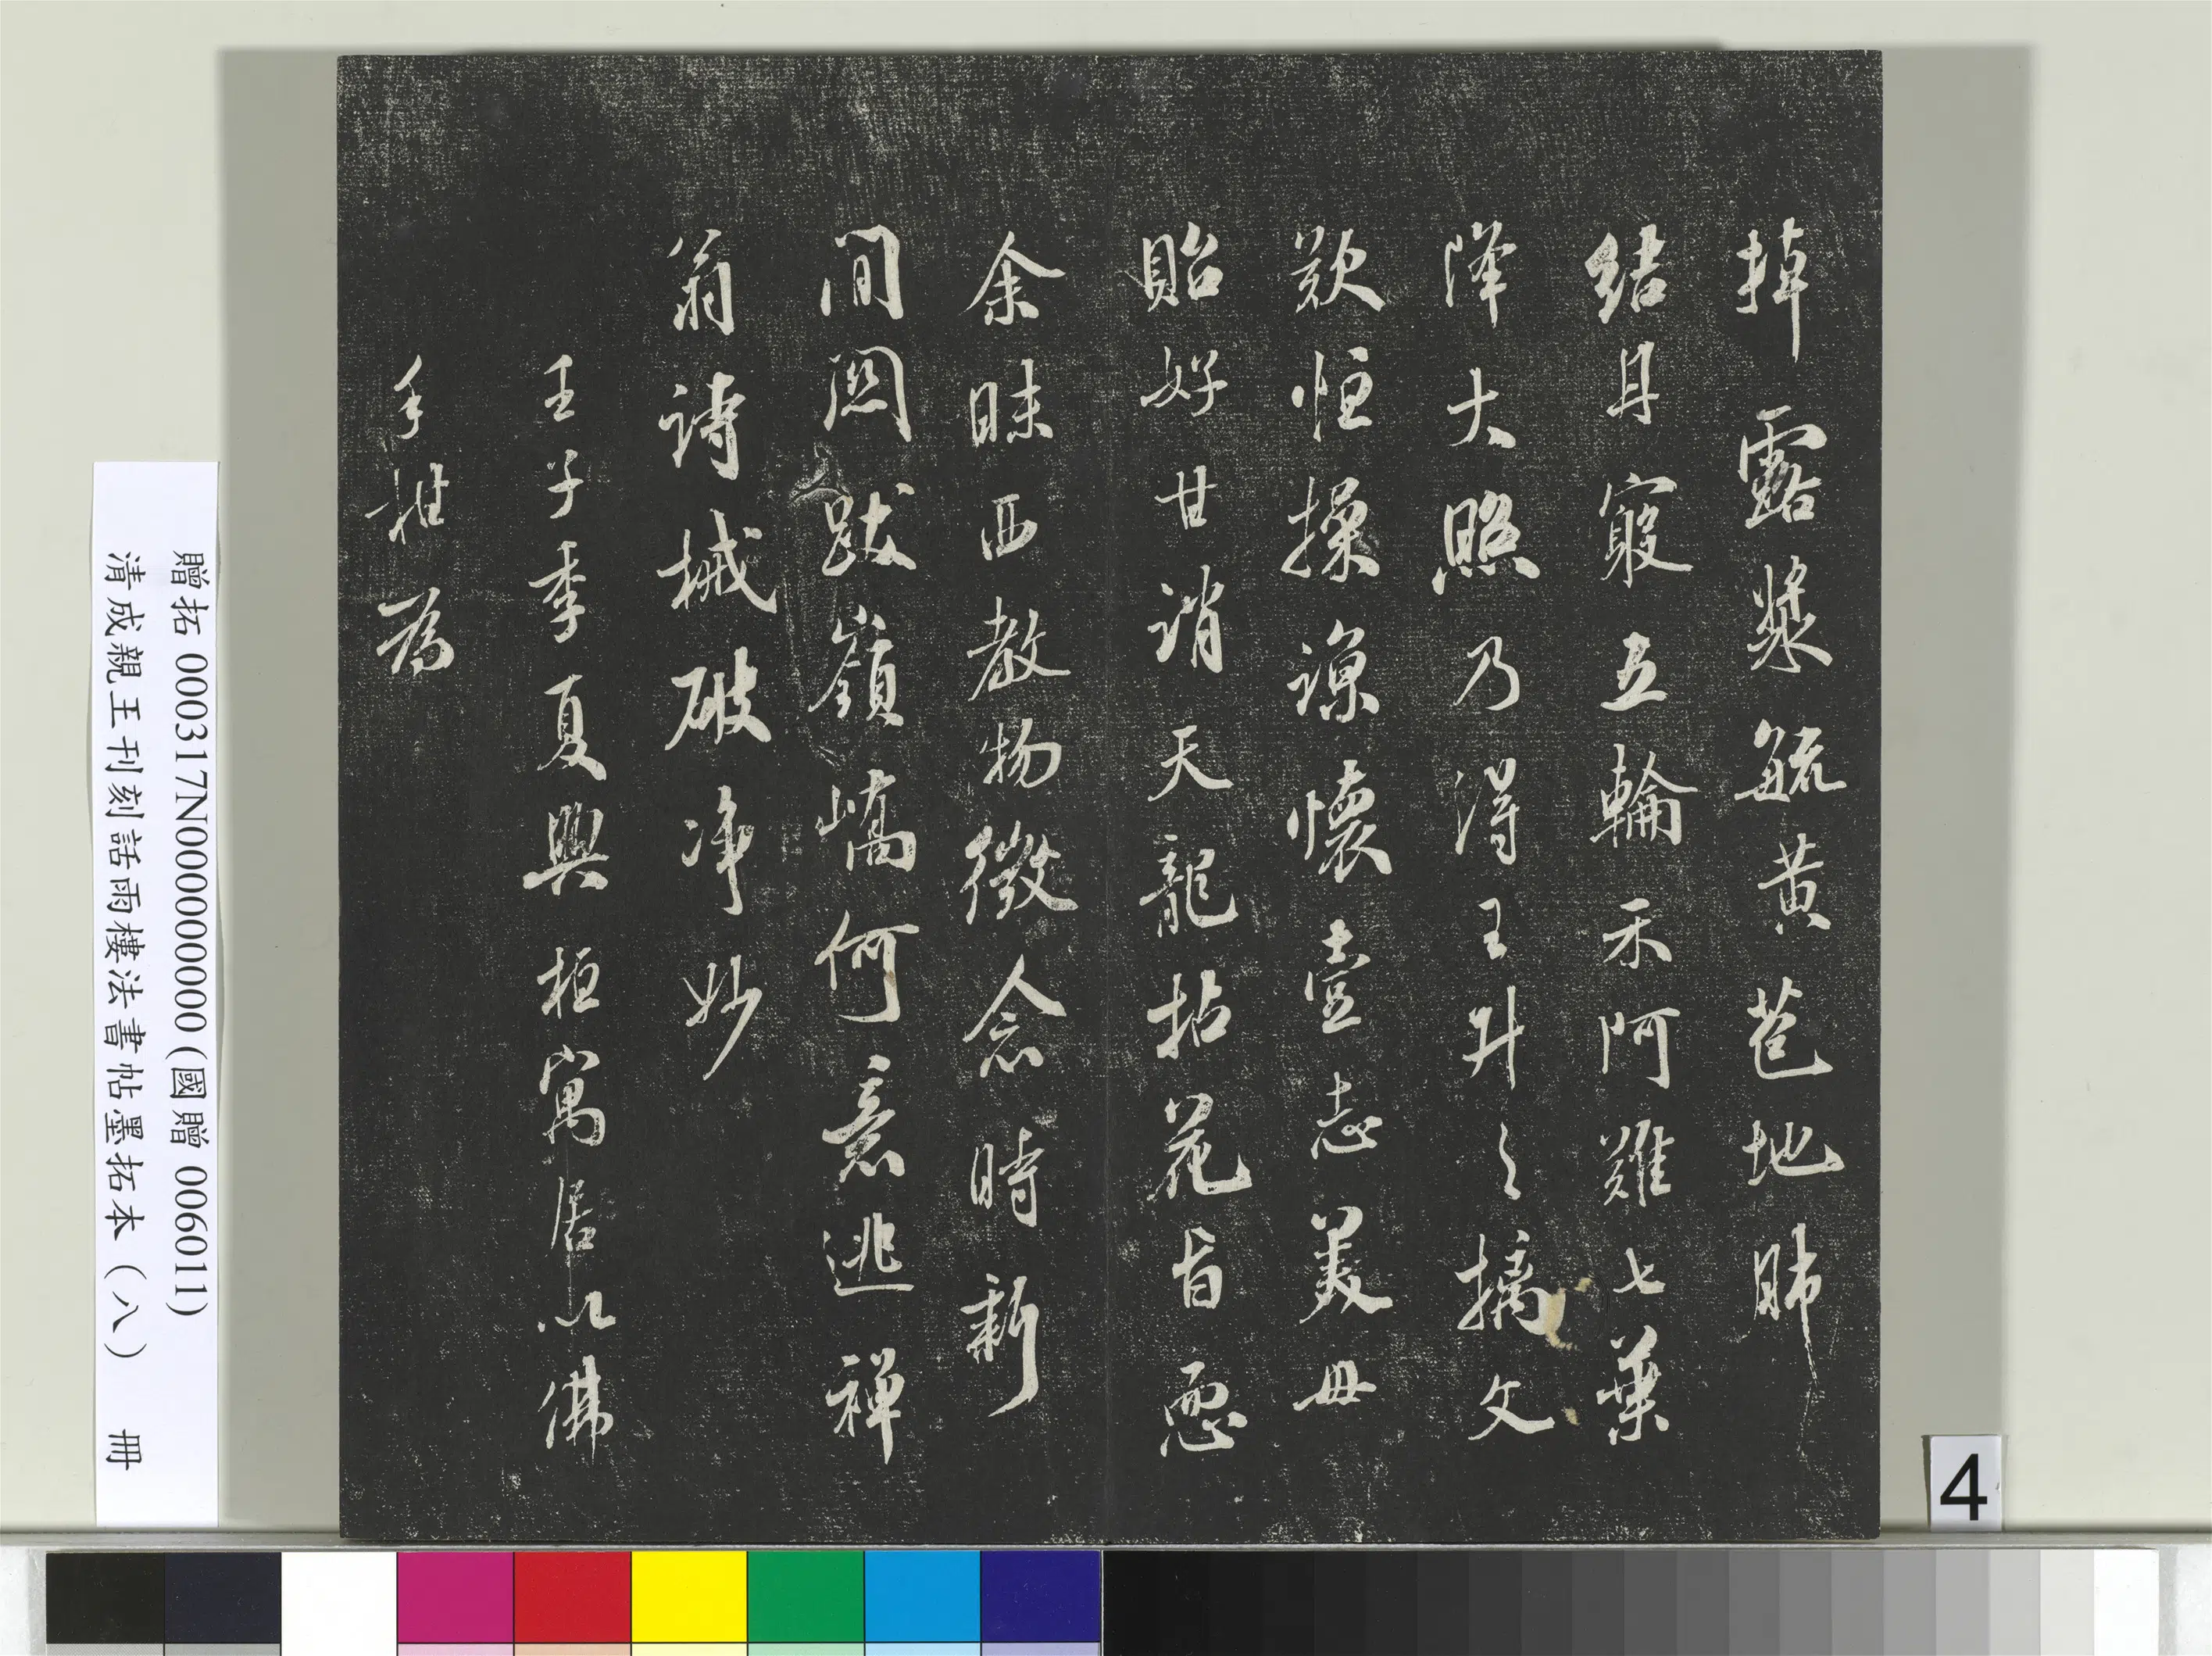 掉露漿毓黃苞地肺
結月窾五輪禾阿難七葉
澤大照乃得王升之摛文
欵恒操諒懷壹志美毋
貽好甘誚天龍拈花旨惡
余昧西教物徵念時新
間閟跋嶺嶠何意逃禪
翁詩械破净妙
壬子季夏與桓寓居以佛
手柑爲
贈拓 000317N000000000 (國贈 006011)
清成親王刊刻話雨樓法書帖墨拓本(八) 冊
4